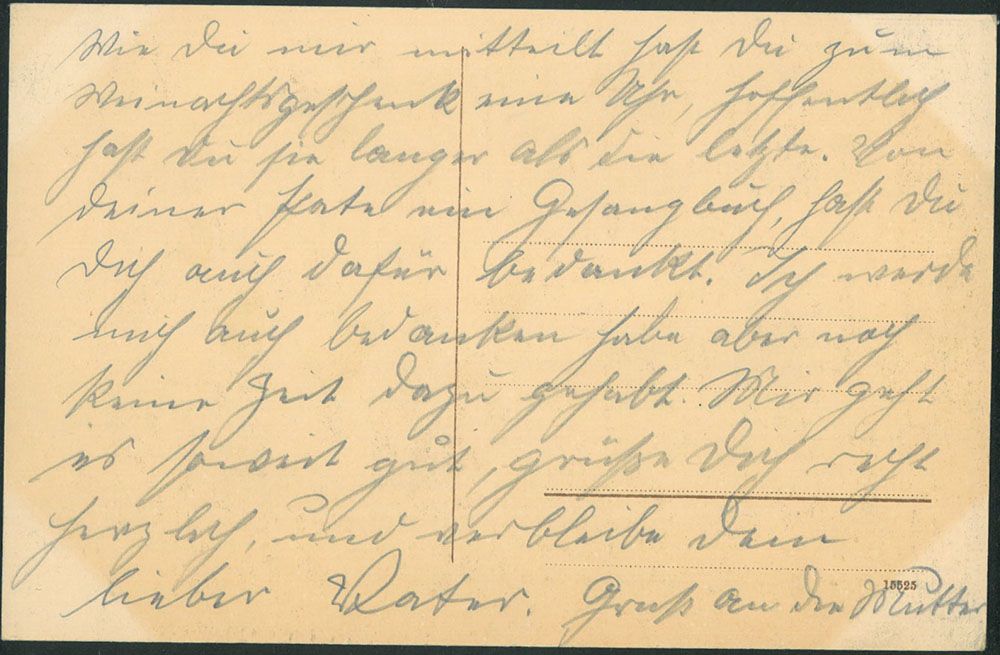 Wie Du mir mitteilt hast Du zum
Weinachtsgeschenk eine Uhr, hoffentlich
hast Du sie langer als die letzte. Von
deiner Pate ein Gesangbuch, hast Du
Dich auch dafür bedankt. Ich werde
mich auch bedanken habe aber noch
keine Zeit dazu gehabt. Mir geht
es soweit gut, grüße Dich recht
herzlich, und verbleibe Dein
lieber Vater. Gruß an die Mutter
15525